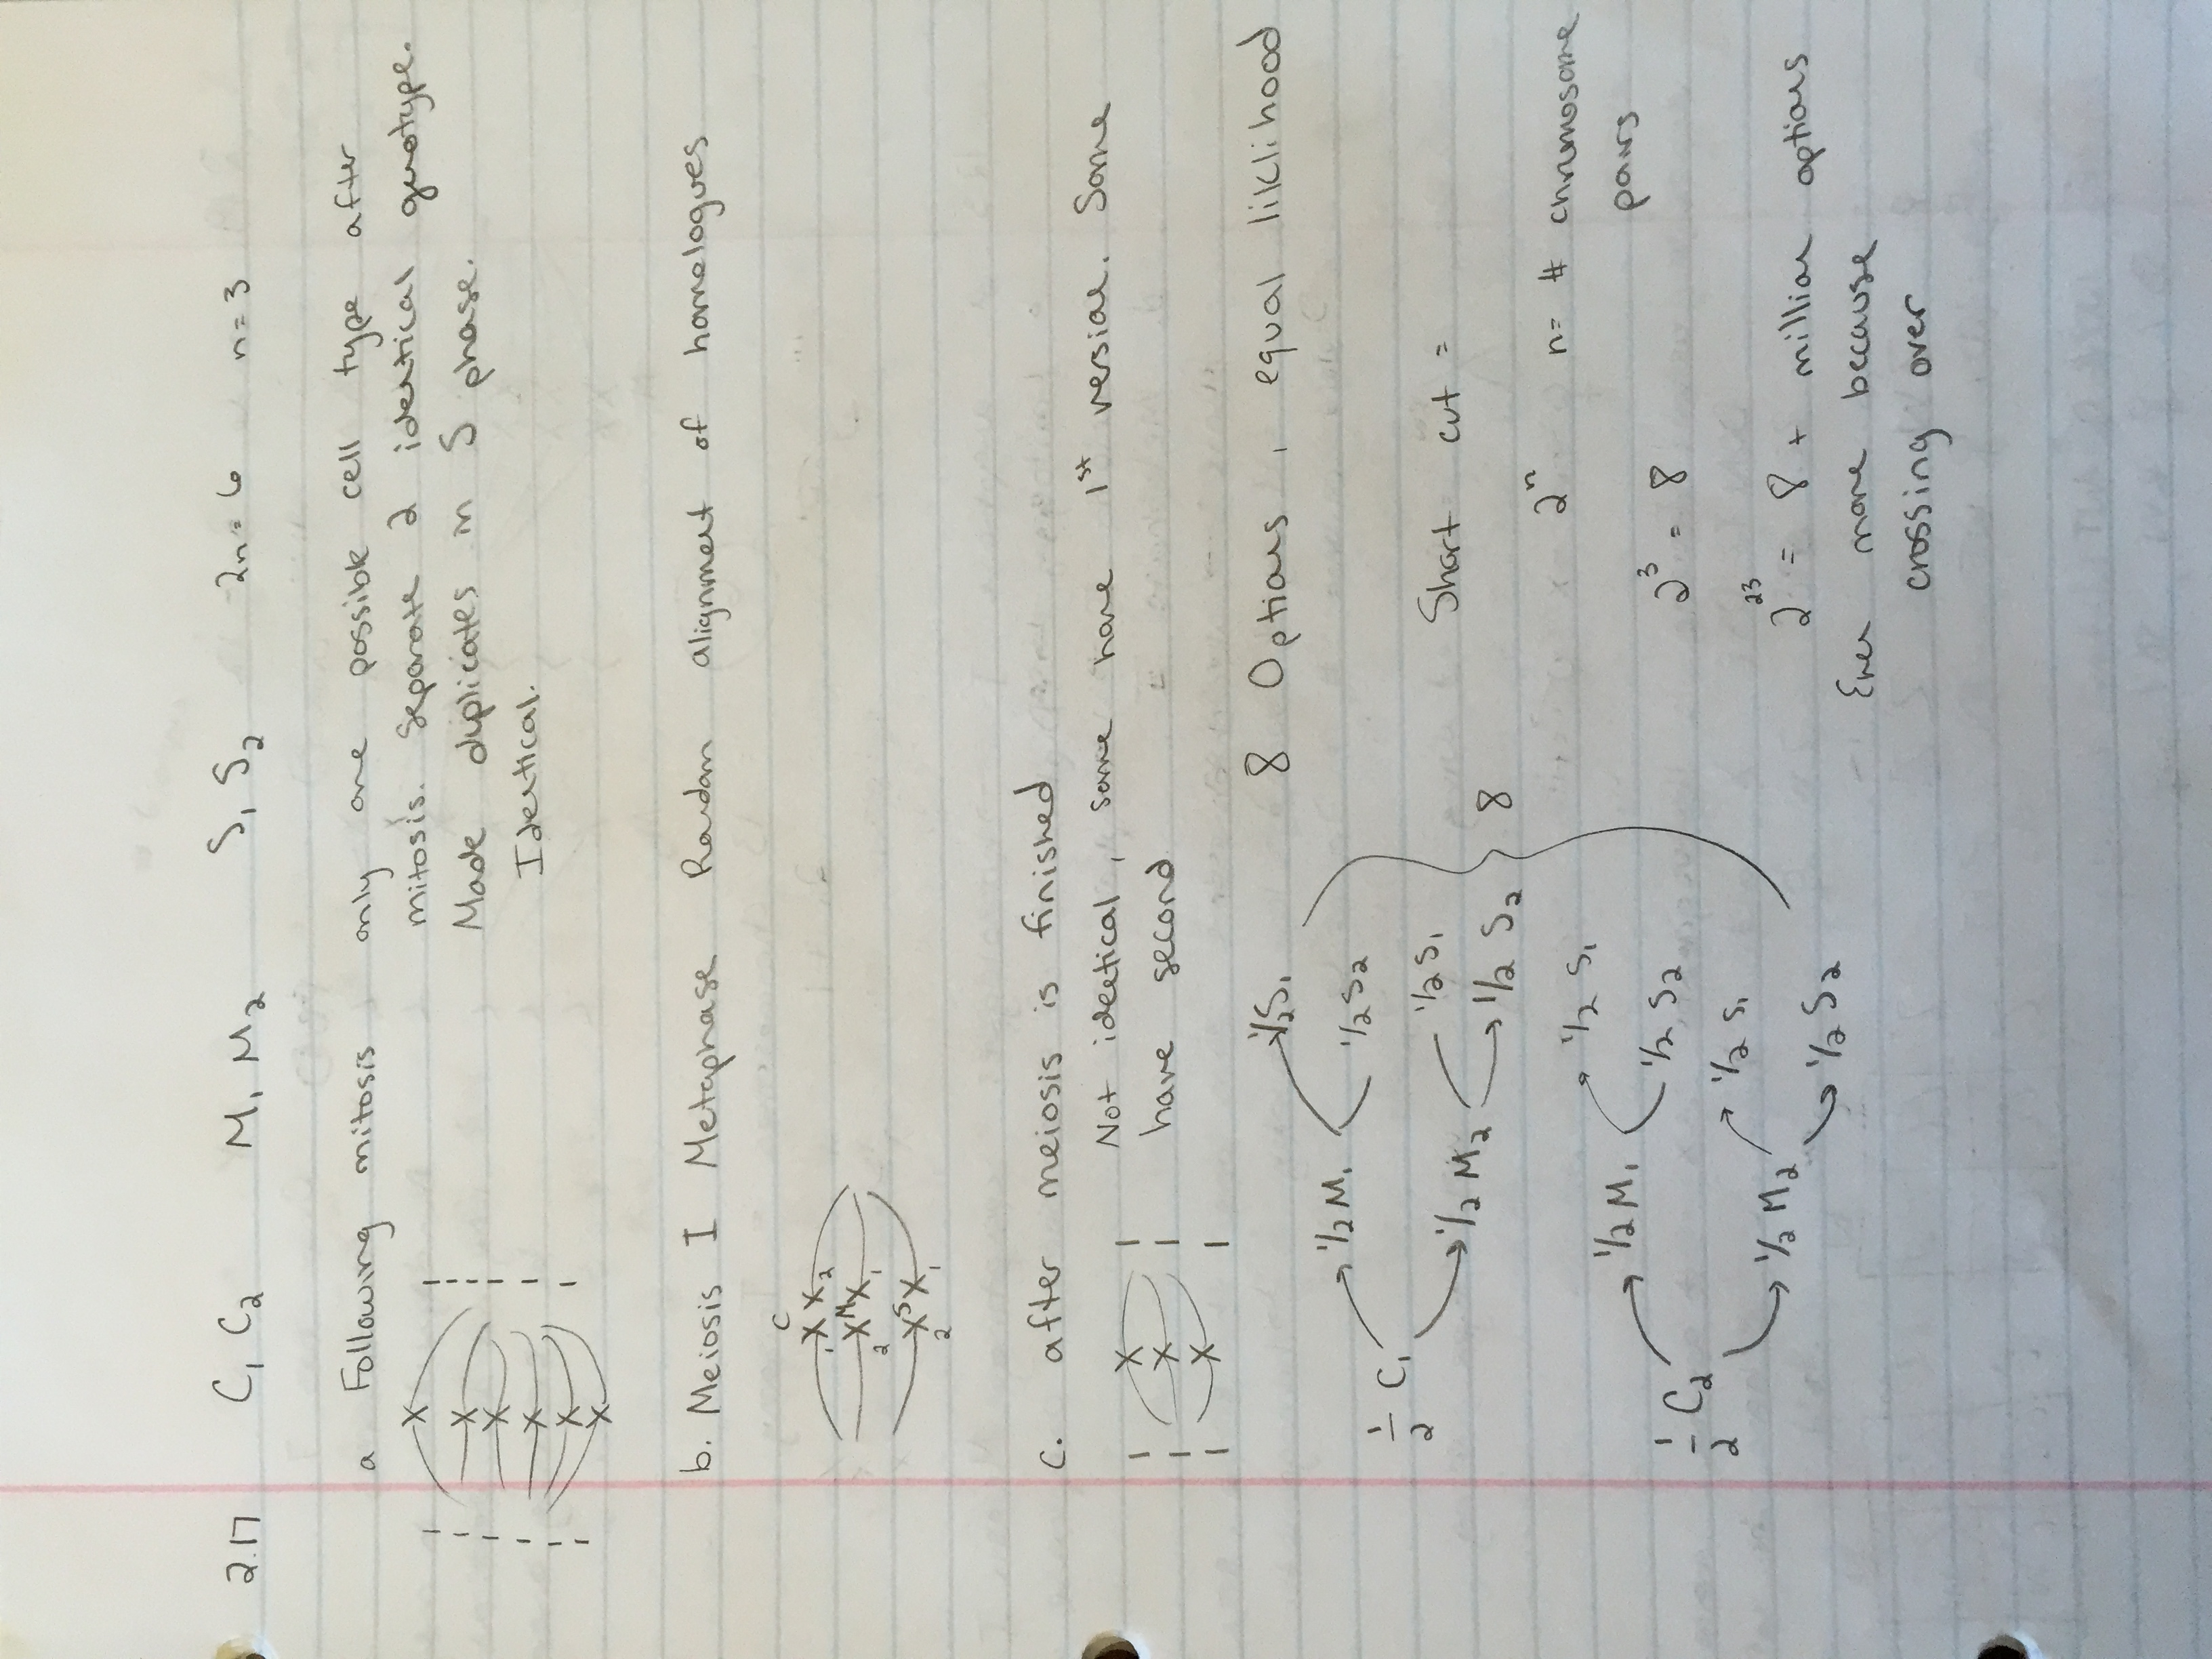 2.17 C₁ C₂ M₁ M₂ S₁ S₂ 2n=6 n=3
a Following mitosis only one possible cell type after
mitosis. Separate 2 identical genotype.
Made duplicates in S phase.
Identical.
b. Meiosis I Metaphase Random alignment of homologues
C
1 X X 2
2 X M X 1
2 X S X 1
c. after meiosis is finished
Not idectical, some have 1st version. Some
have second
8 Options, equal liklihood
1/2 C₁ 1/2 M₁ 1/2 S₁
1/2 S₂
1/2 M₂ 1/2 S₁
1/2 S₂
8
1/2 C₂ 1/2 M₁ 1/2 S₁
1/2 S₂
1/2 M₂ 1/2 S₁
1/2 S₂
Short cut =
2ⁿ n= # chromosome
pairs
2³ = 8
2²³ = 8 + million options
Even more because
crossing over